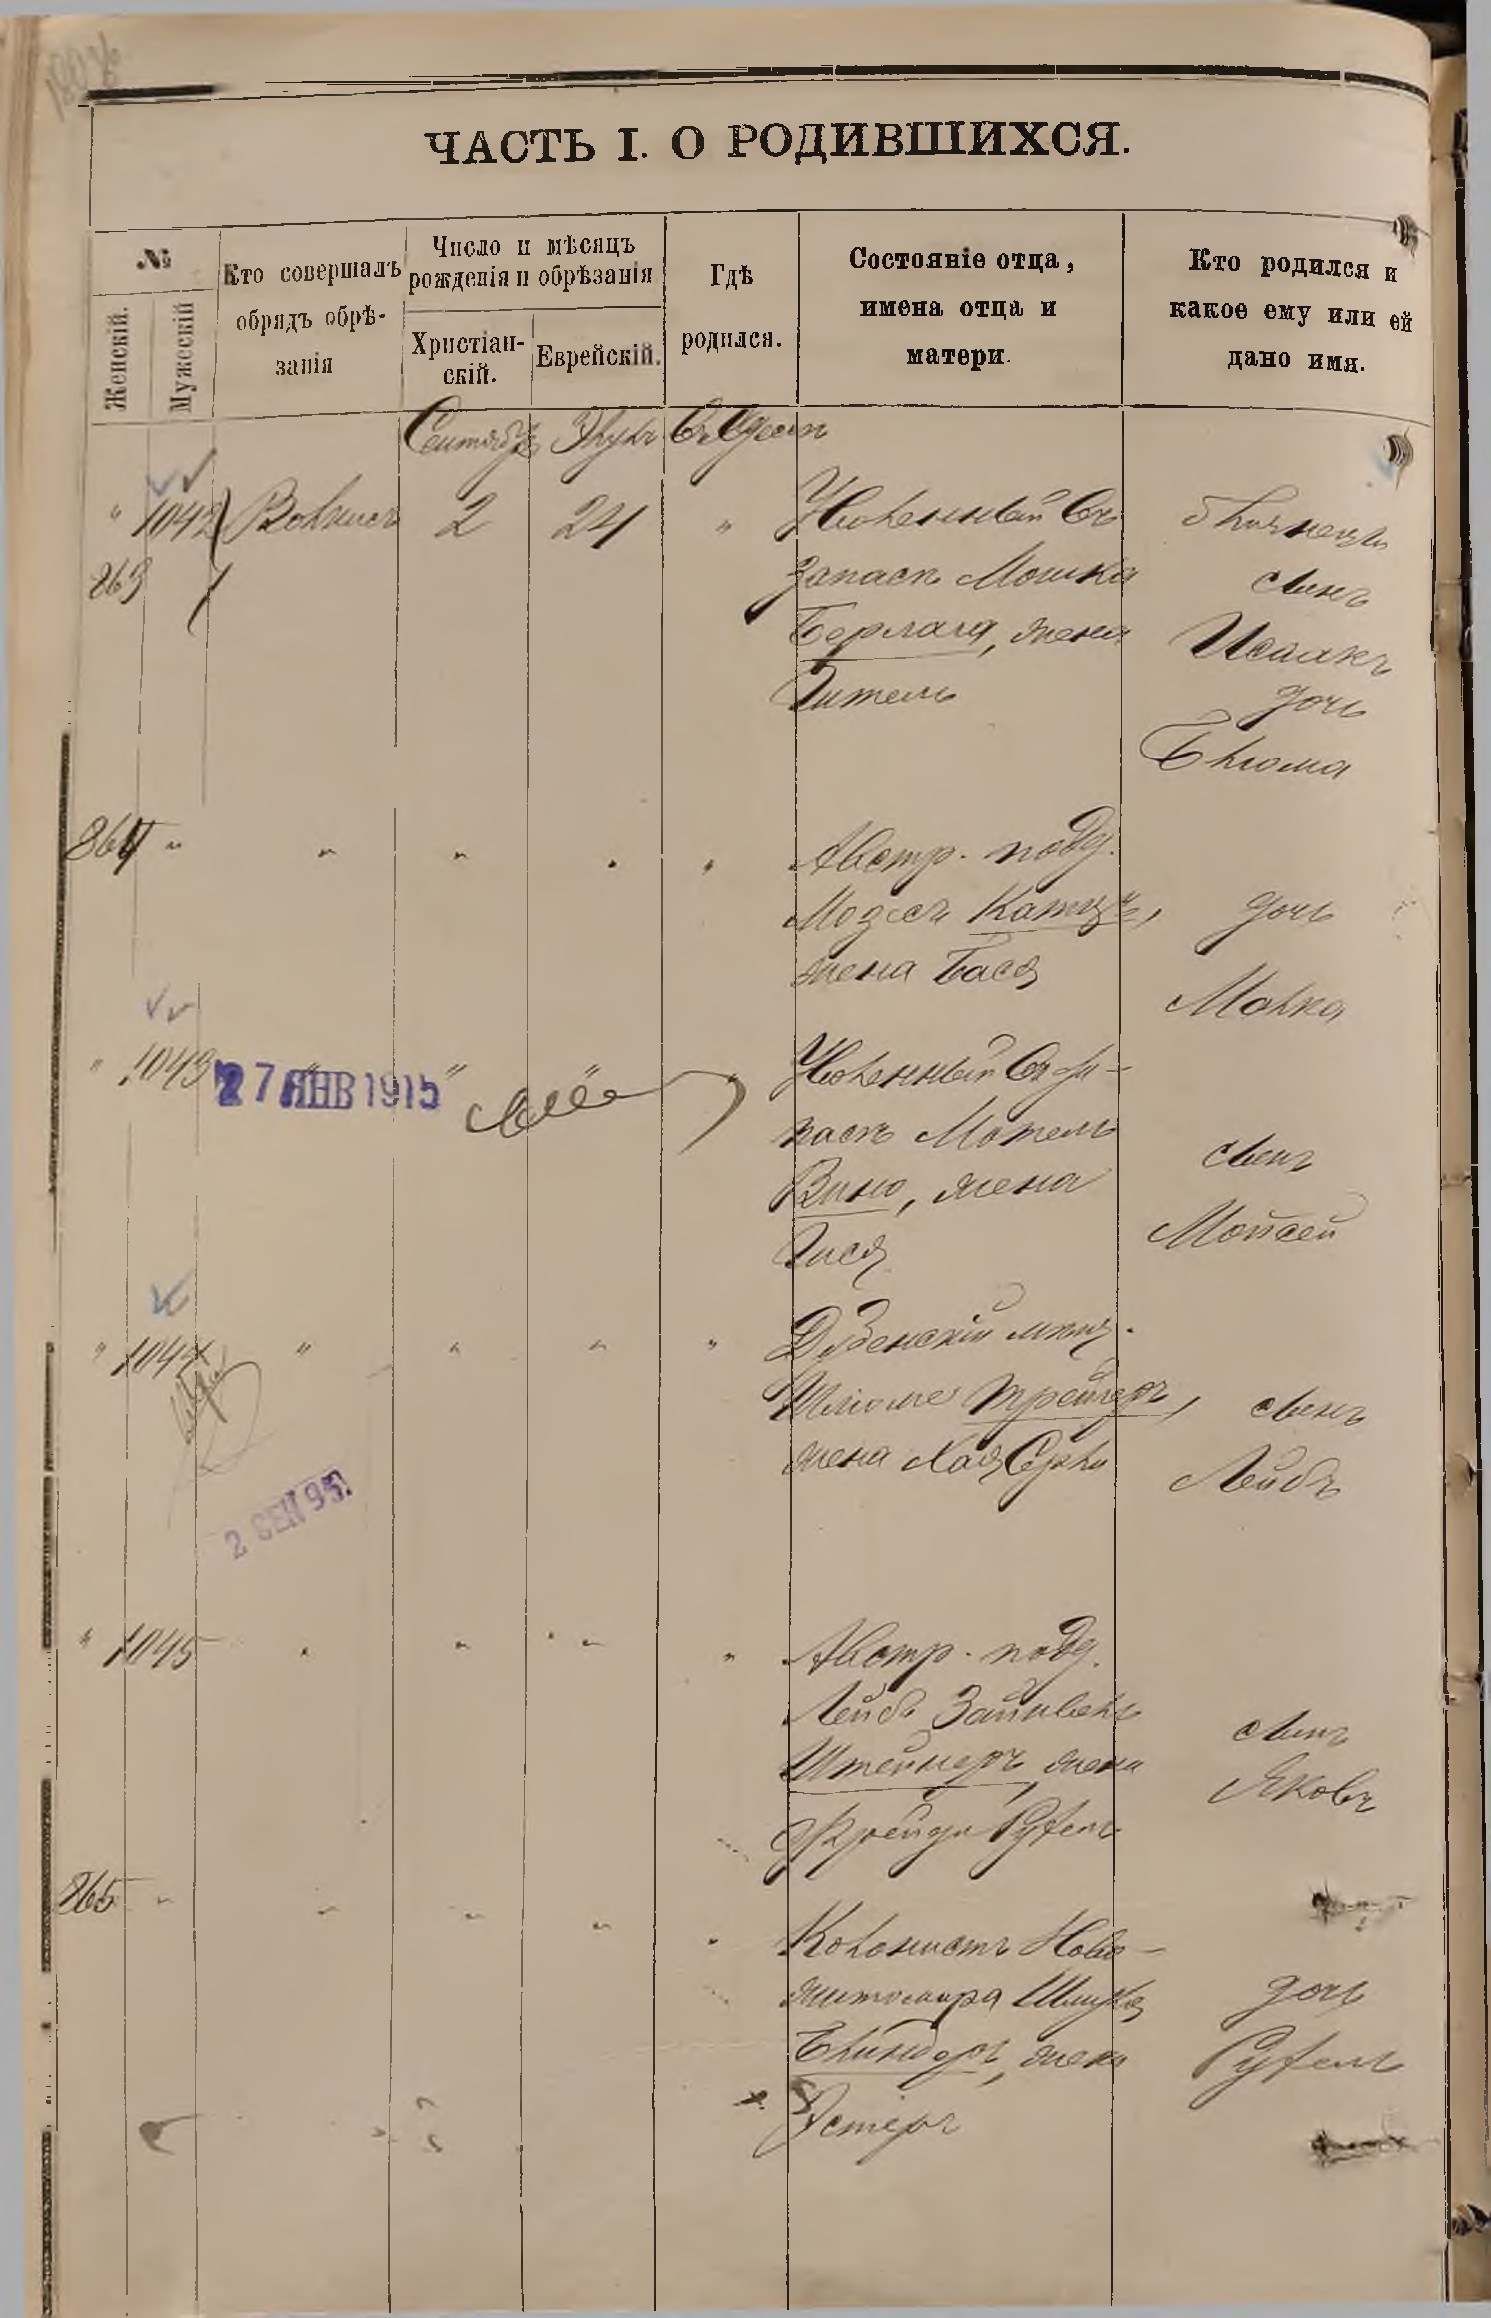 ЧАСТЬ I. О РОДИВШИХСЯ.
№
Женскій.
Мужескій
Кто совершалъ
обрядъ обрѣ-
занія
Число и мѣсяцъ
рожденія и обрѣзанія
Христіан-
скій.
Еврейскій.
Гдѣ
родился.
Состояніе отца,
имена отца и
матери.
Кто родился и
какое ему или ей
дано имя.
Сентябрь Элулъ Въ Одессѣ
" 1042 2 24 "
863
Уволенный въ
запасъ Мошка
Берлага, жена
Гитель
близнецы
сынъ
Исаакъ
дочь
Блюма
864 " " " " "
Австр. подд.
Мозесъ Катцъ,
жена Бася
дочь
Малка
" 1043 " " " "
27 ЯНВ 1915
Уволенный въ за-
пасъ Мотель
Вино, жена
Гися
сынъ
Мойсей
" 1044 " " " "
2 СЕН 95.
Дубенскій мѣщ.
Шлиоме Трейгеръ,
жена Хая Сурка
сынъ
Лейбъ
" 1045 " " " "
Австр. подд.
Лейбъ Зайнвель
Штейнеръ, жена
Фрейда Рухель
сынъ
Яковъ
865 " " " " "
Колонистъ Ново-
житомира
Блиндеръ, жена
Эстеръ
дочь
Рухель